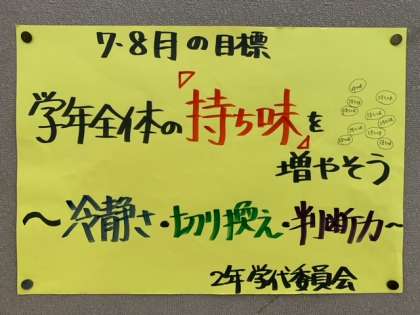 7・8月の目標
学年全体の『持ち味』を
増やそう
～冷静さ・切り換え・判断力～
2年学代委員会